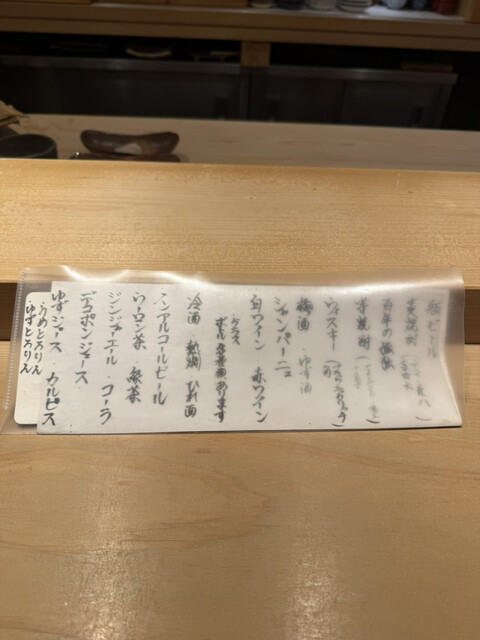 生ビール
麦焼酎
百年の孤独
芋焼酎
ウィスキー
梅酒・ゆず酒
シャンパーニュ
白ワイン 赤ワイン
グラス
ボトル 各種あります
冷酒 熱燗 ひれ酒
ノンアルコールビール
ウーロン茶・緑茶
ジンジャーエール・コーラ
デコポンジュース
ゆずジュース カルピス
うめとろりん
ゆずとろりん